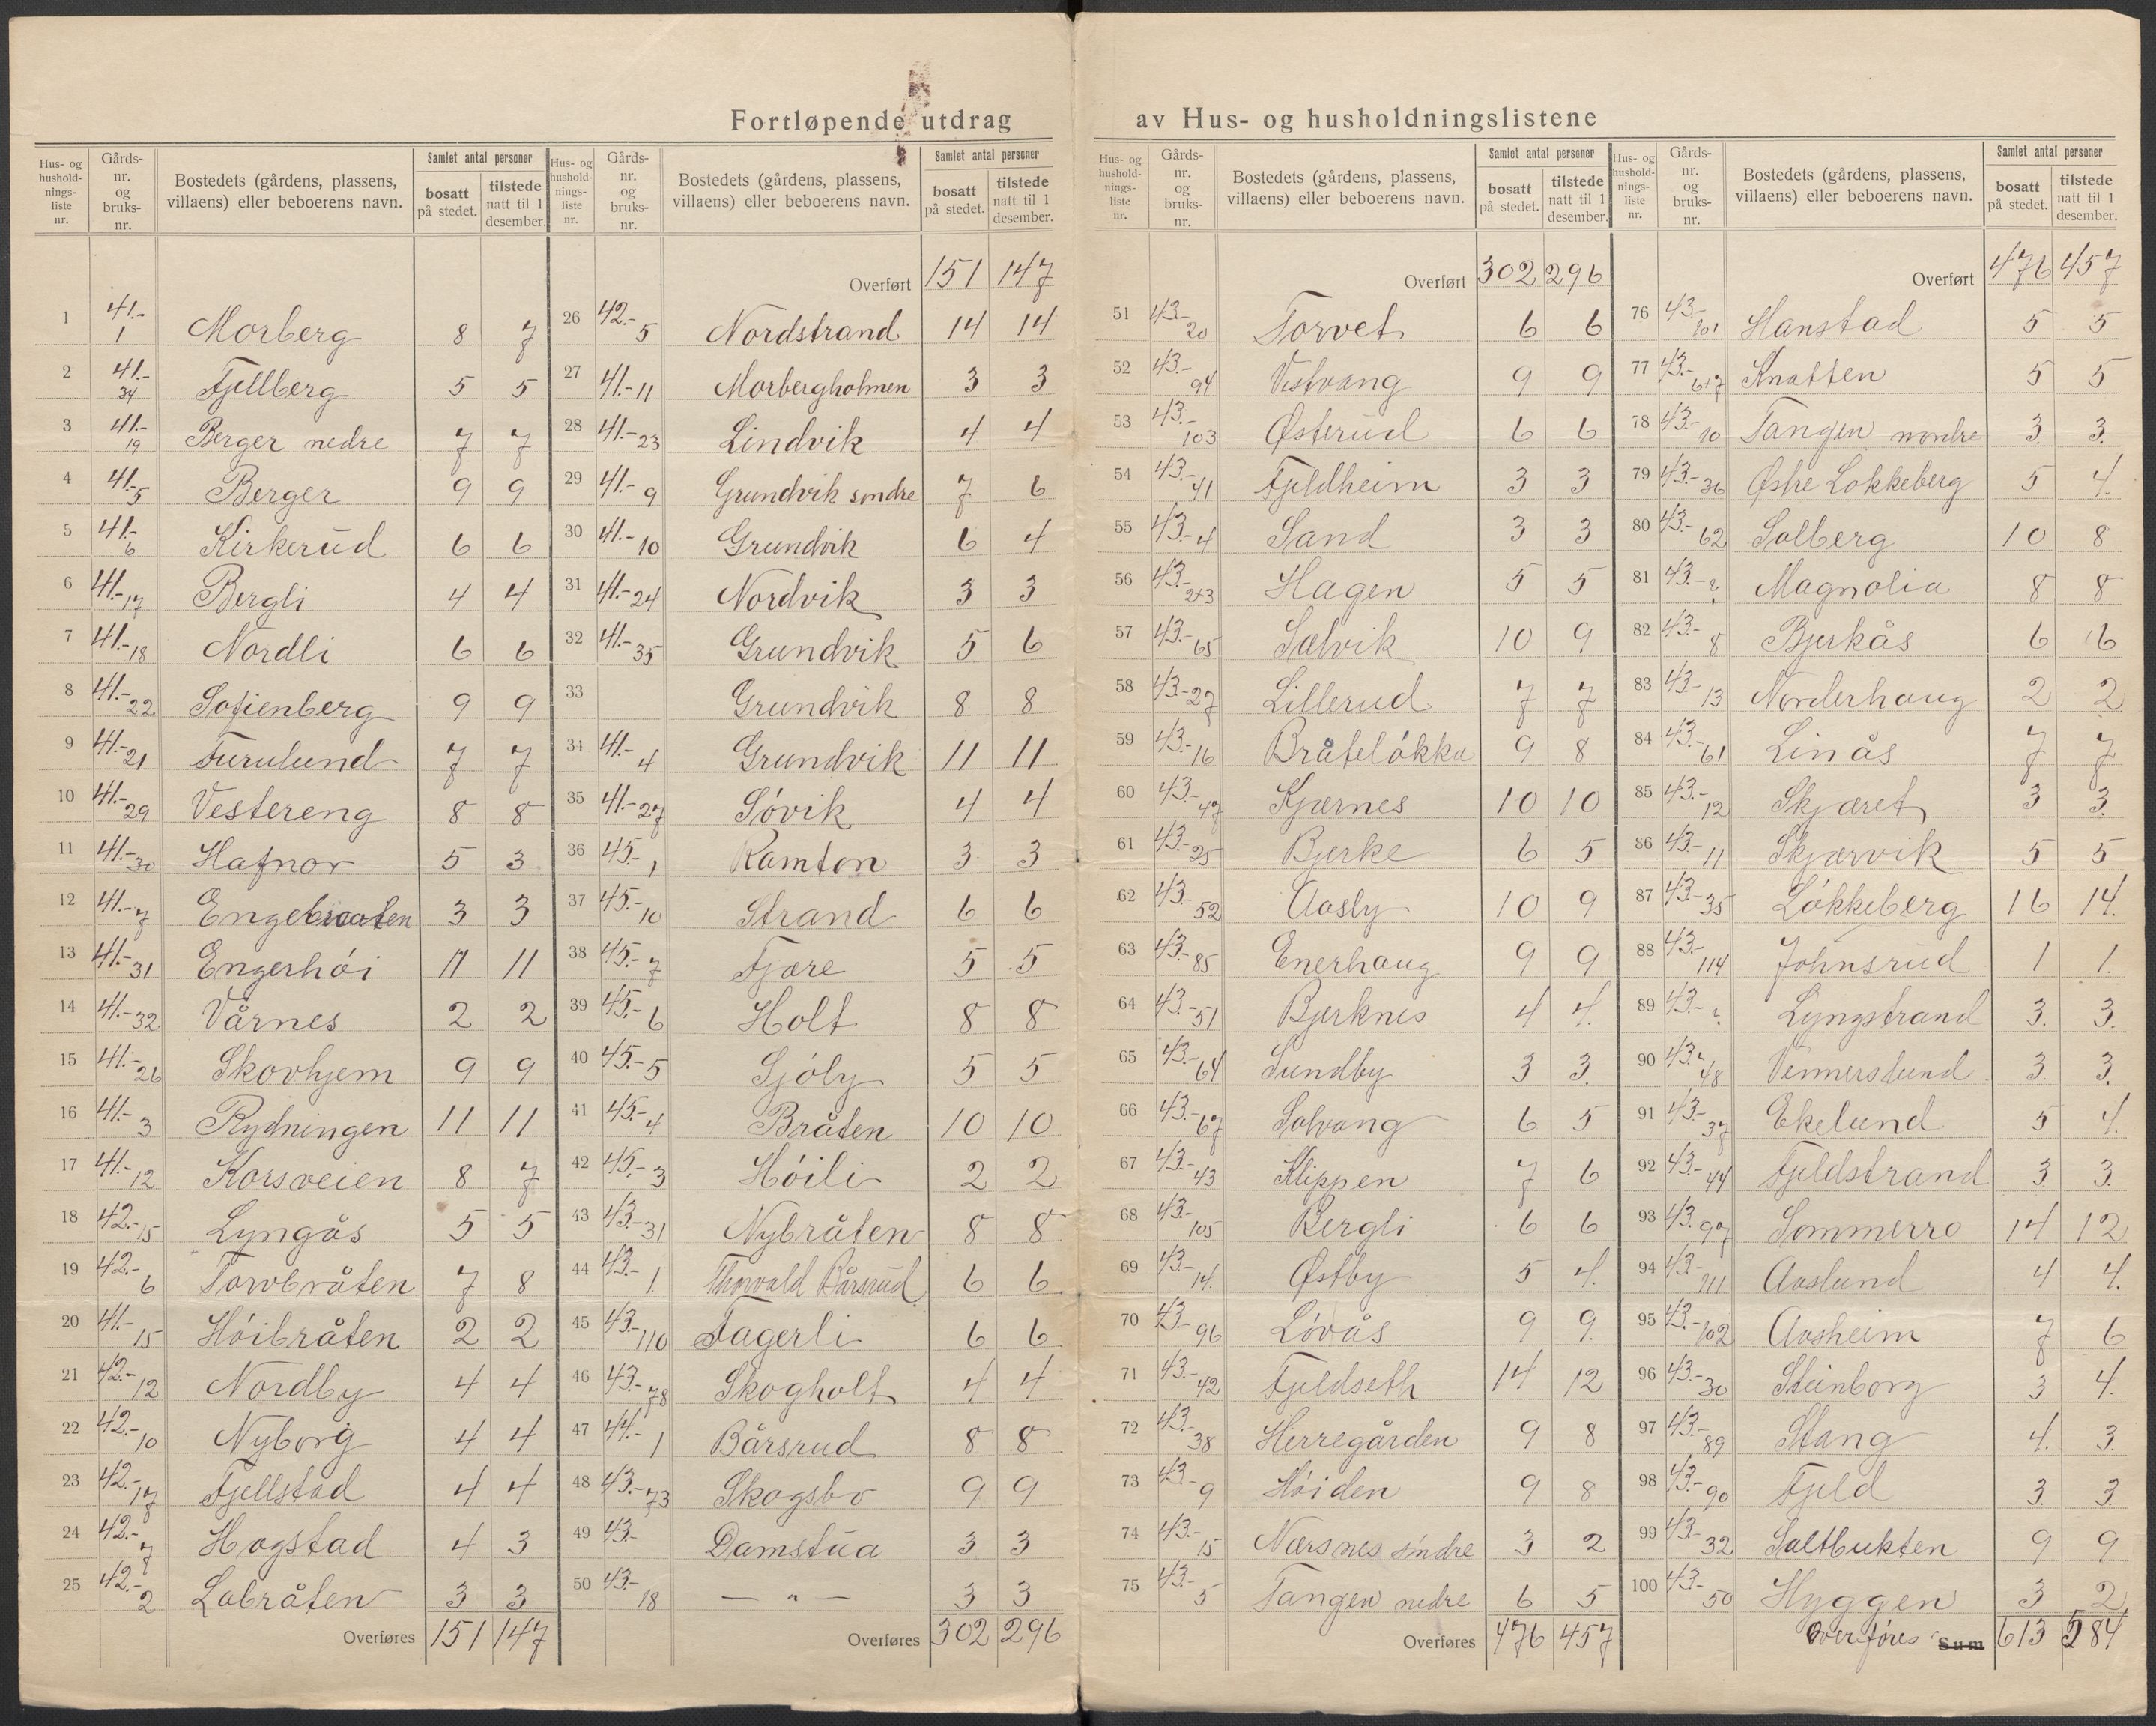 Fortløpende utdrag av Hus- og husholdningslistene
Hus- og hushold-nings-liste nr. | Gårds-nr. og bruks-nr. | Bostedets (gårdens, plassens, villaens) eller beboerens navn. | Samlet antal personer | bosatt på stedet. | tilstede natt til 1 desember.
1 41.-1 Morberg 8 7
2 41.-34 Fjellberg 5 5
3 41.-19 Berger nedre 7 7
4 41.-5 Berger 9 9
5 41.-6 Kirkerud 6 6
6 41.-17 Bergli 4 4
7 41.-18 Nordli 6 6
8 41.-22 Sofienberg 9 9
9 41.-21 Furulund 7 7
10 41.-29 Vestereng 8 8
11 41.-30 Hafnor 5 3
12 41.-7 Engebraaten 3 3
13 41.-31 Engerhöi 11 11
14 41.-32 Vårnes 2 2
15 41.-26 Skovhjem 9 9
16 41.-3 Rydningen 11 11
17 41.-12 Korsveien 8 7
18 42.-15 Lyngås 5 5
19 42.-6 Torvbråten 7 8
20 41.-15 Höibråten 2 2
21 42.-12 Nordby 4 4
22 42.-10 Nyborg 4 4
23 42.-17 Fjellstad 4 4
24 42.-7 Hogstad 4 3
25 42.-2 Labråten 3 3
Overføres 151 147
Hus- og hushold-nings-liste nr. | Gårds-nr. og bruks-nr. | Bostedets (gårdens, plassens, villaens) eller beboerens navn. | Samlet antal personer | bosatt på stedet. | tilstede natt til 1 desember.
Overført 151 147
26 42.-5 Nordstrand 14 14
27 41.-11 Morbergholmen 3 3
28 41.-23 Lindvik 4 4
29 41.-9 Grundvik søndre 7 6
30 41.-10 Grundvik 6 4
31 41.-24 Nordvik 3 3
32 41.-35 Grundvik 5 6
33 Grundvik 8 8
34 41.-4 Grundvik 11 11
35 41.-27 Sövik 4 4
36 45.-1 Ramton 3 3
37 45.-10 Strand 6 6
38 45.-7 Fjære 5 5
39 45.-6 Holt 8 8
40 45.-5 Sjöly 5 5
41 45.-4 Bråten 10 10
42 45.-3 Höili 2 2
43 43.-31 Nybråten 8 8
44 43.-1 Thorvald Bårsrud 6 6
45 43.-110 Fagerli 6 6
46 43.-78 Skogholt 4 4
47 44.-1 Bårsrud 8 8
48 43.-73 Skogsbo 9 9
49 43.- Damstua 3 3
50 43.-18 — " — 3 3
Overføres 302 296
Hus- og hushold-nings-liste nr. | Gårds-nr. og bruks-nr. | Bostedets (gårdens, plassens, villaens) eller beboerens navn. | Samlet antal personer | bosatt på stedet. | tilstede natt til 1 desember.
Overført 302 296
51 43.-20 Torvet 6 6
52 43.-94 Vestvang 9 9
53 43.-103 Østerud 6 6
54 43.-41 Fjeldheim 3 3
55 43.-4 Sand 3 3
56 43.-2+3 Hagen 5 5
57 43.-65 Solvik 10 9
58 43.-27 Lillerud 7 7
59 43.-16 Bråtelökka 9 8
60 43.-47 Kjærnes 10 10
61 43.-25 Bjerke 6 5
62 43.-52 Aasly 10 9
63 43.-85 Enerhaug 9 9
64 43.-51 Bjerknes 4 4.
65 43.-64 Sundby 3 3.
66 43.-67 Solvang 6 5
67 43.-43 Klippen 7 6
68 43.-105 Bergli 6 6
69 43.-14. Østby 5 4.
70 43.-96 Lövås 9 9.
71 43.-42 Fjeldseth 14 12
72 43.-38 Herregården 9 8
73 43.-9 Höiden 9 8
74 43.-15 Nærsnes söndre 3 2
75 43.-5 Tangen nedre 6 5
Overføres 476 457
Hus- og hushold-nings-liste nr. | Gårds-nr. og bruks-nr. | Bostedets (gårdens, plassens, villaens) eller beboerens navn. | Samlet antal personer | bosatt på stedet. | tilstede natt til 1 desember.
Overført 476 457
76 43.-101 Hanstad 5 5
77 43.-6+7 Knatten 5 5
78 43.-10 Tangen nordre 3. 3.
79 43.-36 Østre Lokkeberg 5 4.
80 43.-62 Solberg 10 8
81 43.-? Magnolia 8 8
82 43.-8 Bjerkås 6 6
83 43.-13 Norderhaug 2 2
84 43.-61 Linås 7 7
85 43.-12 Skjæret 3 3.
86 43.-11 Skjærvik 5 5
87 43.-35 Lökkeberg 16 14.
88 43.-114 Johnsrud 1 1.
89 43.-? Lyngstrand 3. 3.
90 43.-48 Vennerslund 3. 3.
91 43.-37 Ekelund 5 4.
92 43.-44 Fjeldstrand 3 3.
93 43.97 Sommerro 14 12
94 43.-111 Aaslund 4 4.
95 43.-102 Aasheim 7 6
96 43.-30 Steinborg 3 4.
97 43.-89 Stang 4. 3.
98 43.-90 Fjeld 3. 3.
99 43.-32 Saltbukten 9 9
100 43.-50 Hyggen 3 2
Overföres Sum 613 584